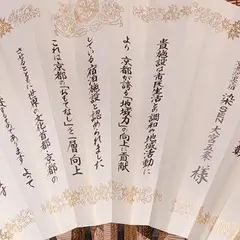 染 SEN 大宮五条 様
貴施設は市民生活と調和の地域活動に
より 京都が誇る「地域力」の向上に貢献
している宿泊施設と認められました
これは京都の「おもてなし」を一層向上
させるとともに世界の文化首都・京都の
よって